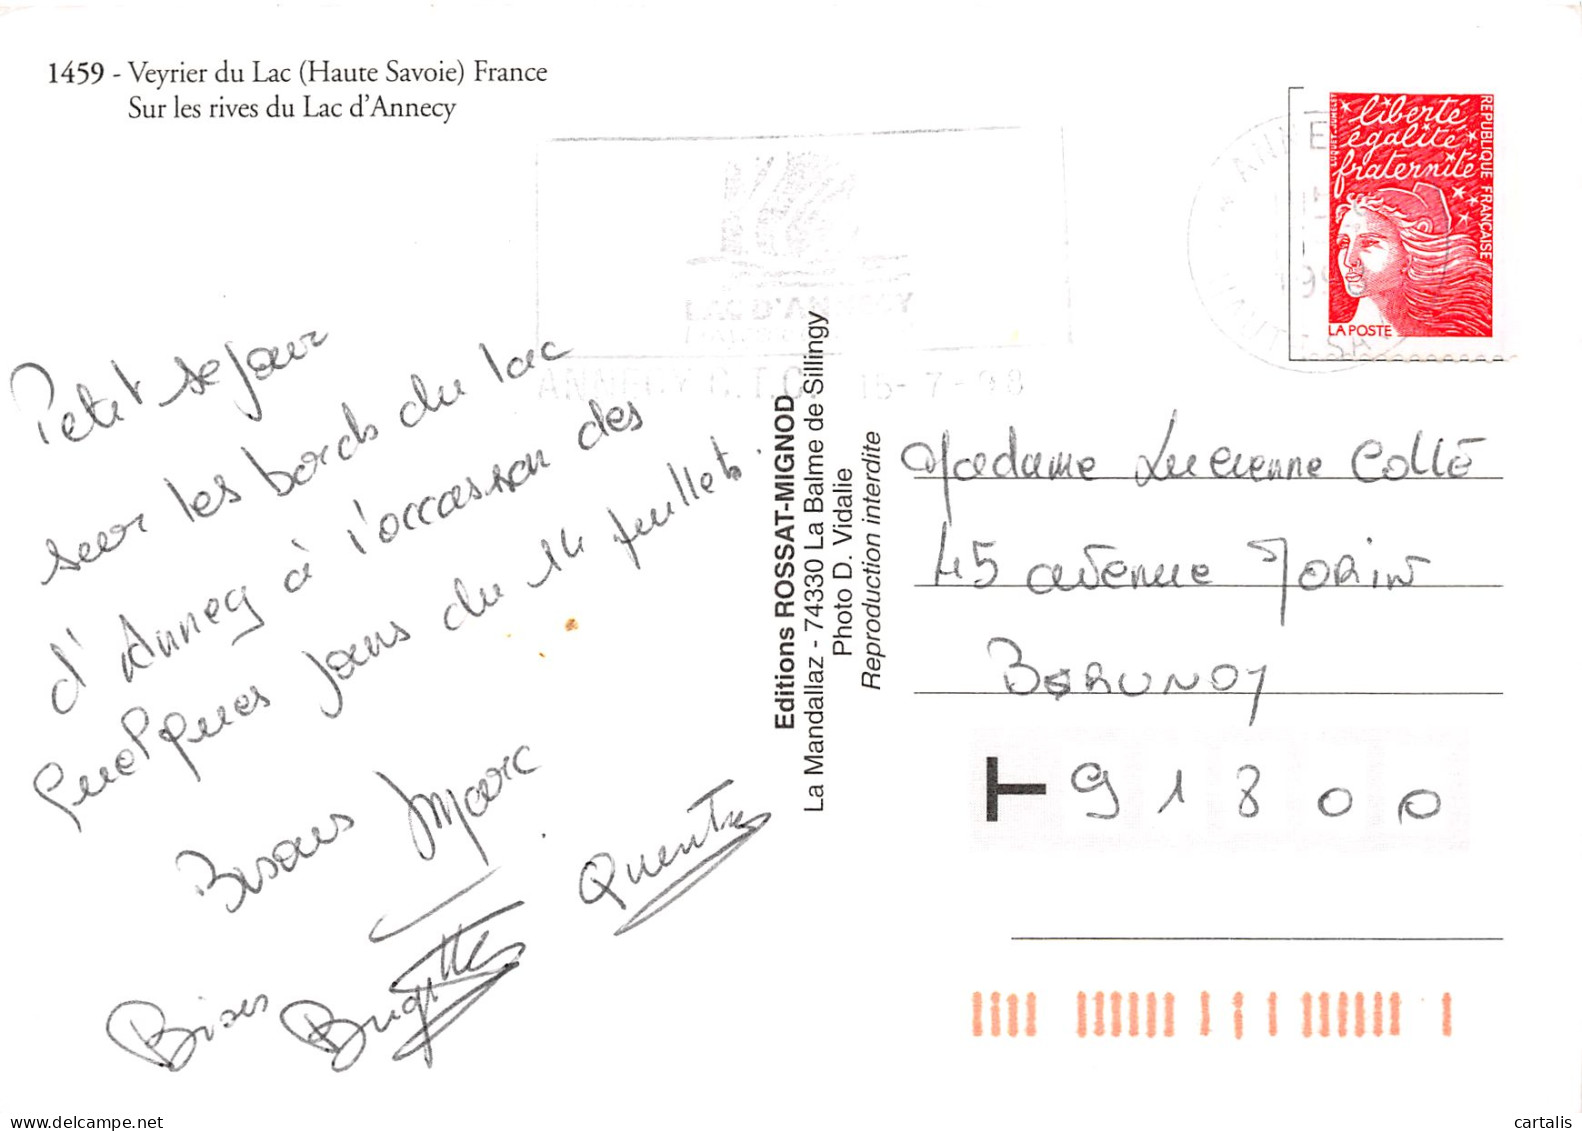 1459 - Veyrier du Lac (Haute Savoie) France
Sur les rives du Lac d'Annecy
liberté
égalité
fraternité
REPUBLIQUE FRANÇAISE
LA POSTE
ANNECY C.T.C. 15-7-98
Petit sejour
sur les bords du lac
d'Annecy à l'occasion des
quelques jours du 14 juillet.
Bisous Marc
Quentin
Bises Brigitte
Editions ROSSAT-MIGNOD
La Mandallaz - 74330 La Balme de Sillingy
Photo D. Vidalie
Reproduction interdite
Madame Lucienne Collé
45 avenue MORIN
BORUNOY
T 91800
cartalis